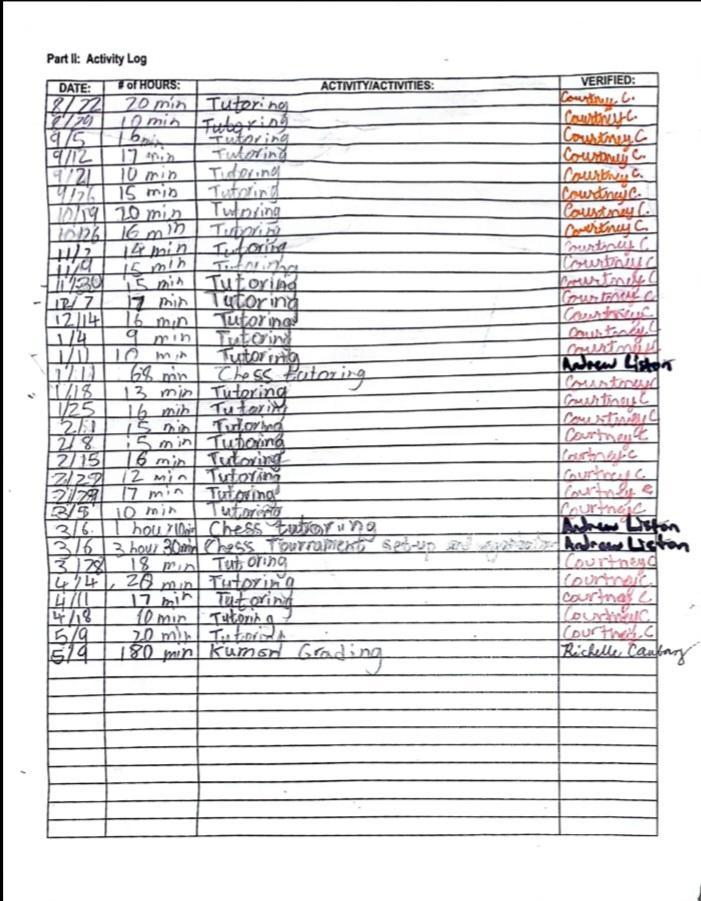 Part II: Activity Log
DATE: # of HOURS: ACTIVITY/ACTIVITIES: VERIFIED:
8/22 20 min Tutoring Courtney C.
8/29 10 min Tutoring Courtney C.
9/5 16 min Tutoring Courtney C
9/12 17 min Tutoring Courtney C.
9/21 10 min Tutoring Courtney C.
9/26 15 min Tutoring Courtney C.
10/19 20 min Tutoring Courtney C.
10/26 16 min Tutoring Courtney C.
11/2 14 min Tutoring Courtney C
11/9 15 min Tutoring Courtney C
11/30 15 min Tutoring Courtney C
12/7 17 min Tutoring Courtney C
12/14 16 min Tutoring Courtney C
1/4 9 min Tutoring Courtney C
1/11 10 min Tutoring Courtney C
1/11 68 min Chess tutoring Andrew Liston
1/18 13 min Tutoring Courtney C
1/25 16 min Tutoring Courtney C
2/1 15 min Tutoring Courtney C
2/8 15 min Tutoring Courtney C
2/15 16 min Tutoring Courtney C
12 min Tutoring Courtney C
2/29 17 min Tutoring Courtney C
3/5 10 min Tutoring Courtney C
3/6 1 hour 10min Chess tutoring Andrew Liston
3/6 3 hour 30min Chess Tournament set-up and organization Andrew Liston
3/28 18 min Tutoring Courtney C
4/4 20 min Tutoring Courtney C.
4/11 17 min Tutoring Courtney C.
4/18 10 min Tutoring Courtney C
5/9 20 min Tutoring Courtney C
5/9 180 min Kumon Grading Richelle